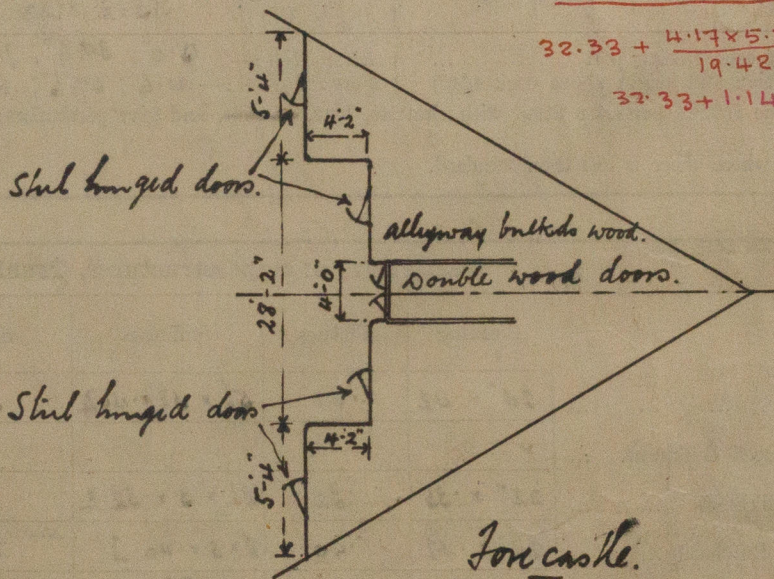 32.33 + 4.17×5.
19.42
32.33 + 1.14
5'-4"
4'-2"
Steel hinged doors.
alleyway bulkds wood.
Double wood doors.
4'-0"
28'-2"
Steel hinged doors
4'-2"
5'-4"
Forecastle.